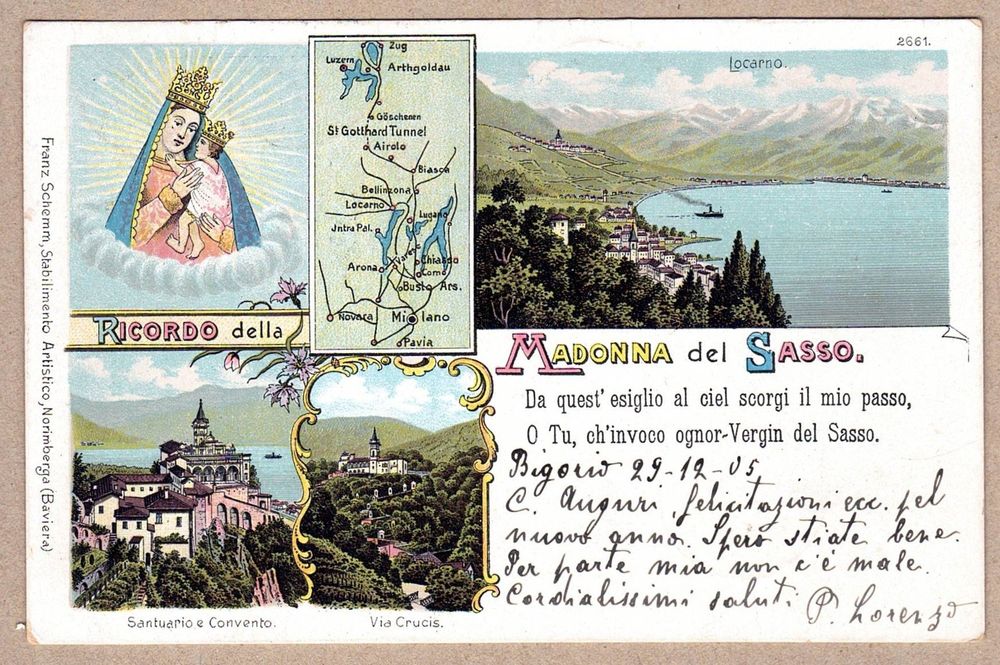 2661.
Locarno.
Zug
Luzern
Arthgoldau
Göschenen
St Gotthard Tunnel
Airolo
Biasca
Bellinzona
Locarno
Lugano
Jntra Pal.
Varese
Chiasso
Arona
Como
Busto Ars.
Novara
Milano
Pavia
RICORDO della
MADONNA del SASSO.
Da quest' esiglio al ciel scorgi il mio passo,
O Tu, ch'invoco ognor-Vergin del Sasso.
Bigorio 29-12-05
C. Auguri, felicitazioni ecc. pel
nuovo anno. Spero stiate bene.
Per parte mia non c'è male.
Cordialissimi saluti
P. Lorenzo
Santuario e Convento.
Via Crucis.
Franz Schemm, Stabilimento Artistico, Norimberga (Baviera)